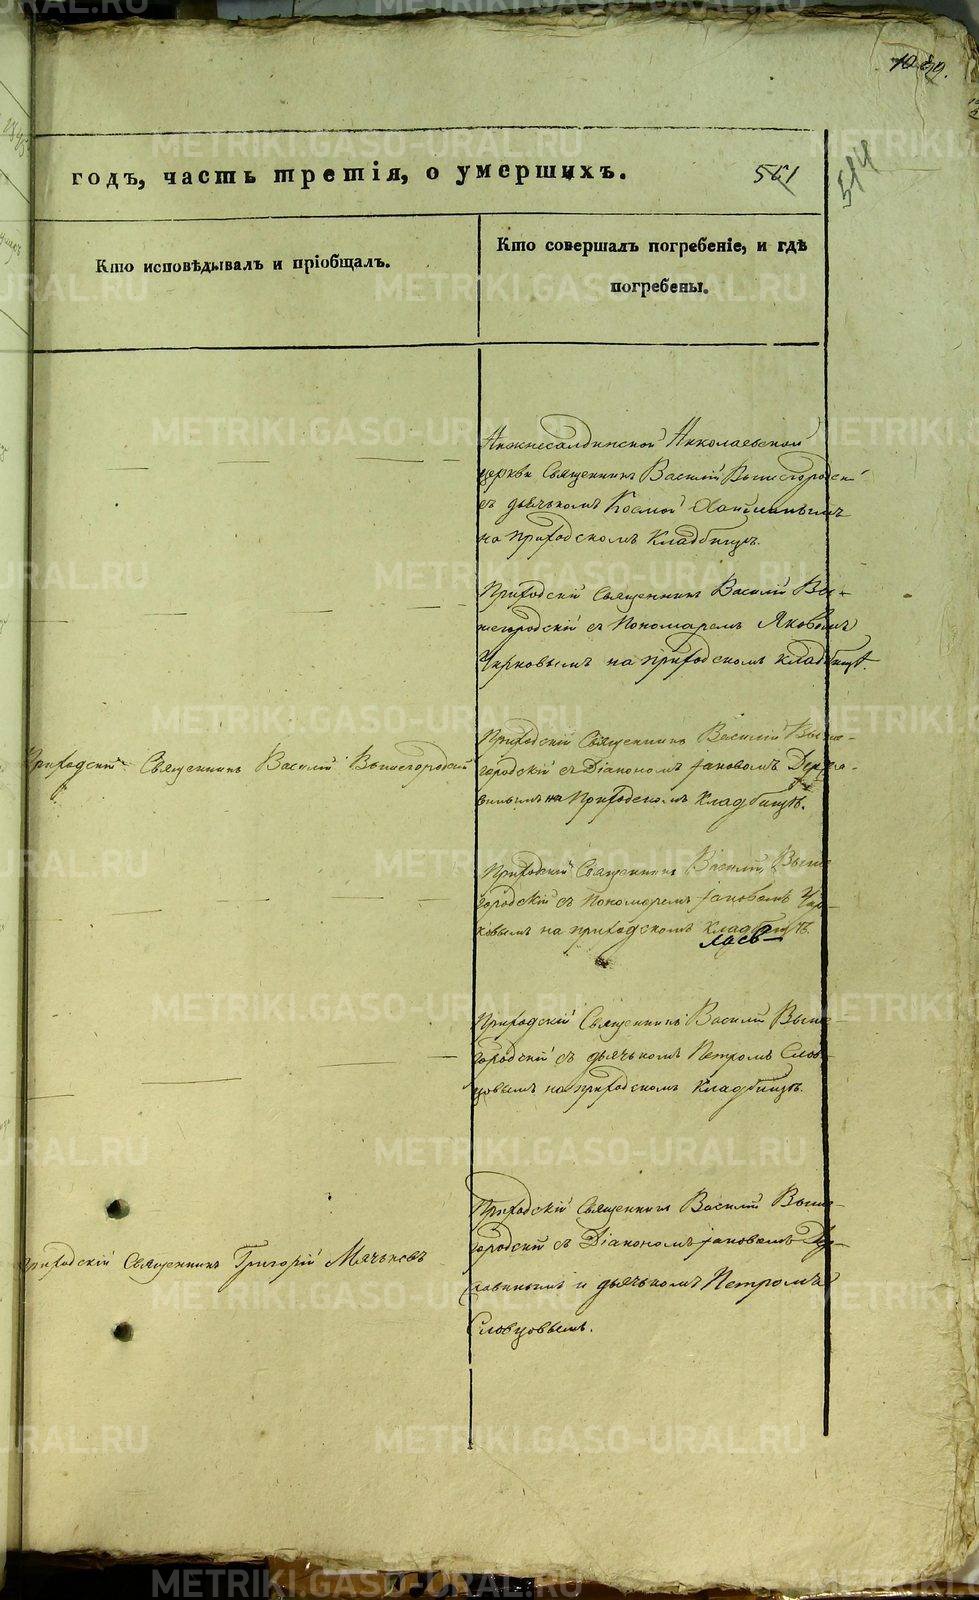 годъ, часть третія, о умершихъ. 561
514
Кто исповѣдывалъ и пріобщалъ.
Кто совершалъ погребеніе, и гдѣ
погребены.
Нижнесалдинской Николаевской
церкви Священникъ Василій Вышегородскій
съ дьячькомъ Космой
на приходскомъ Кладбищѣ.
Приходскій Священникъ Василій Вы-
шегородскій съ Пономаремъ Яковомъ
Чирковымъ на приходскомъ кладбищѣ.
Приходскій Священникъ Василій Вышегородскій
Приходскій Священникъ Василій Выше-
городскій съ Діакономъ Іаковомъ
на Приходскомъ Кладбищѣ.
Приходскій Священникъ Василій Выше-
городскій съ Пономаремъ Іаковомъ Чир-
ковымъ на приходскомъ Кладбищѣ.
Приходскій Священникъ Василій Выше-
городскій съ дьячькомъ Петромъ Слов-
цовымъ на приходскомъ Кладбищѣ.
Приходскій Священникъ Григорій Мячьковъ
Приходскій Священникъ Василій Выше-
городскій съ Діакономъ Іаковомъ
и дьячькомъ Петромъ
Словцовымъ.
METRIKI.GASO-URAL.RU